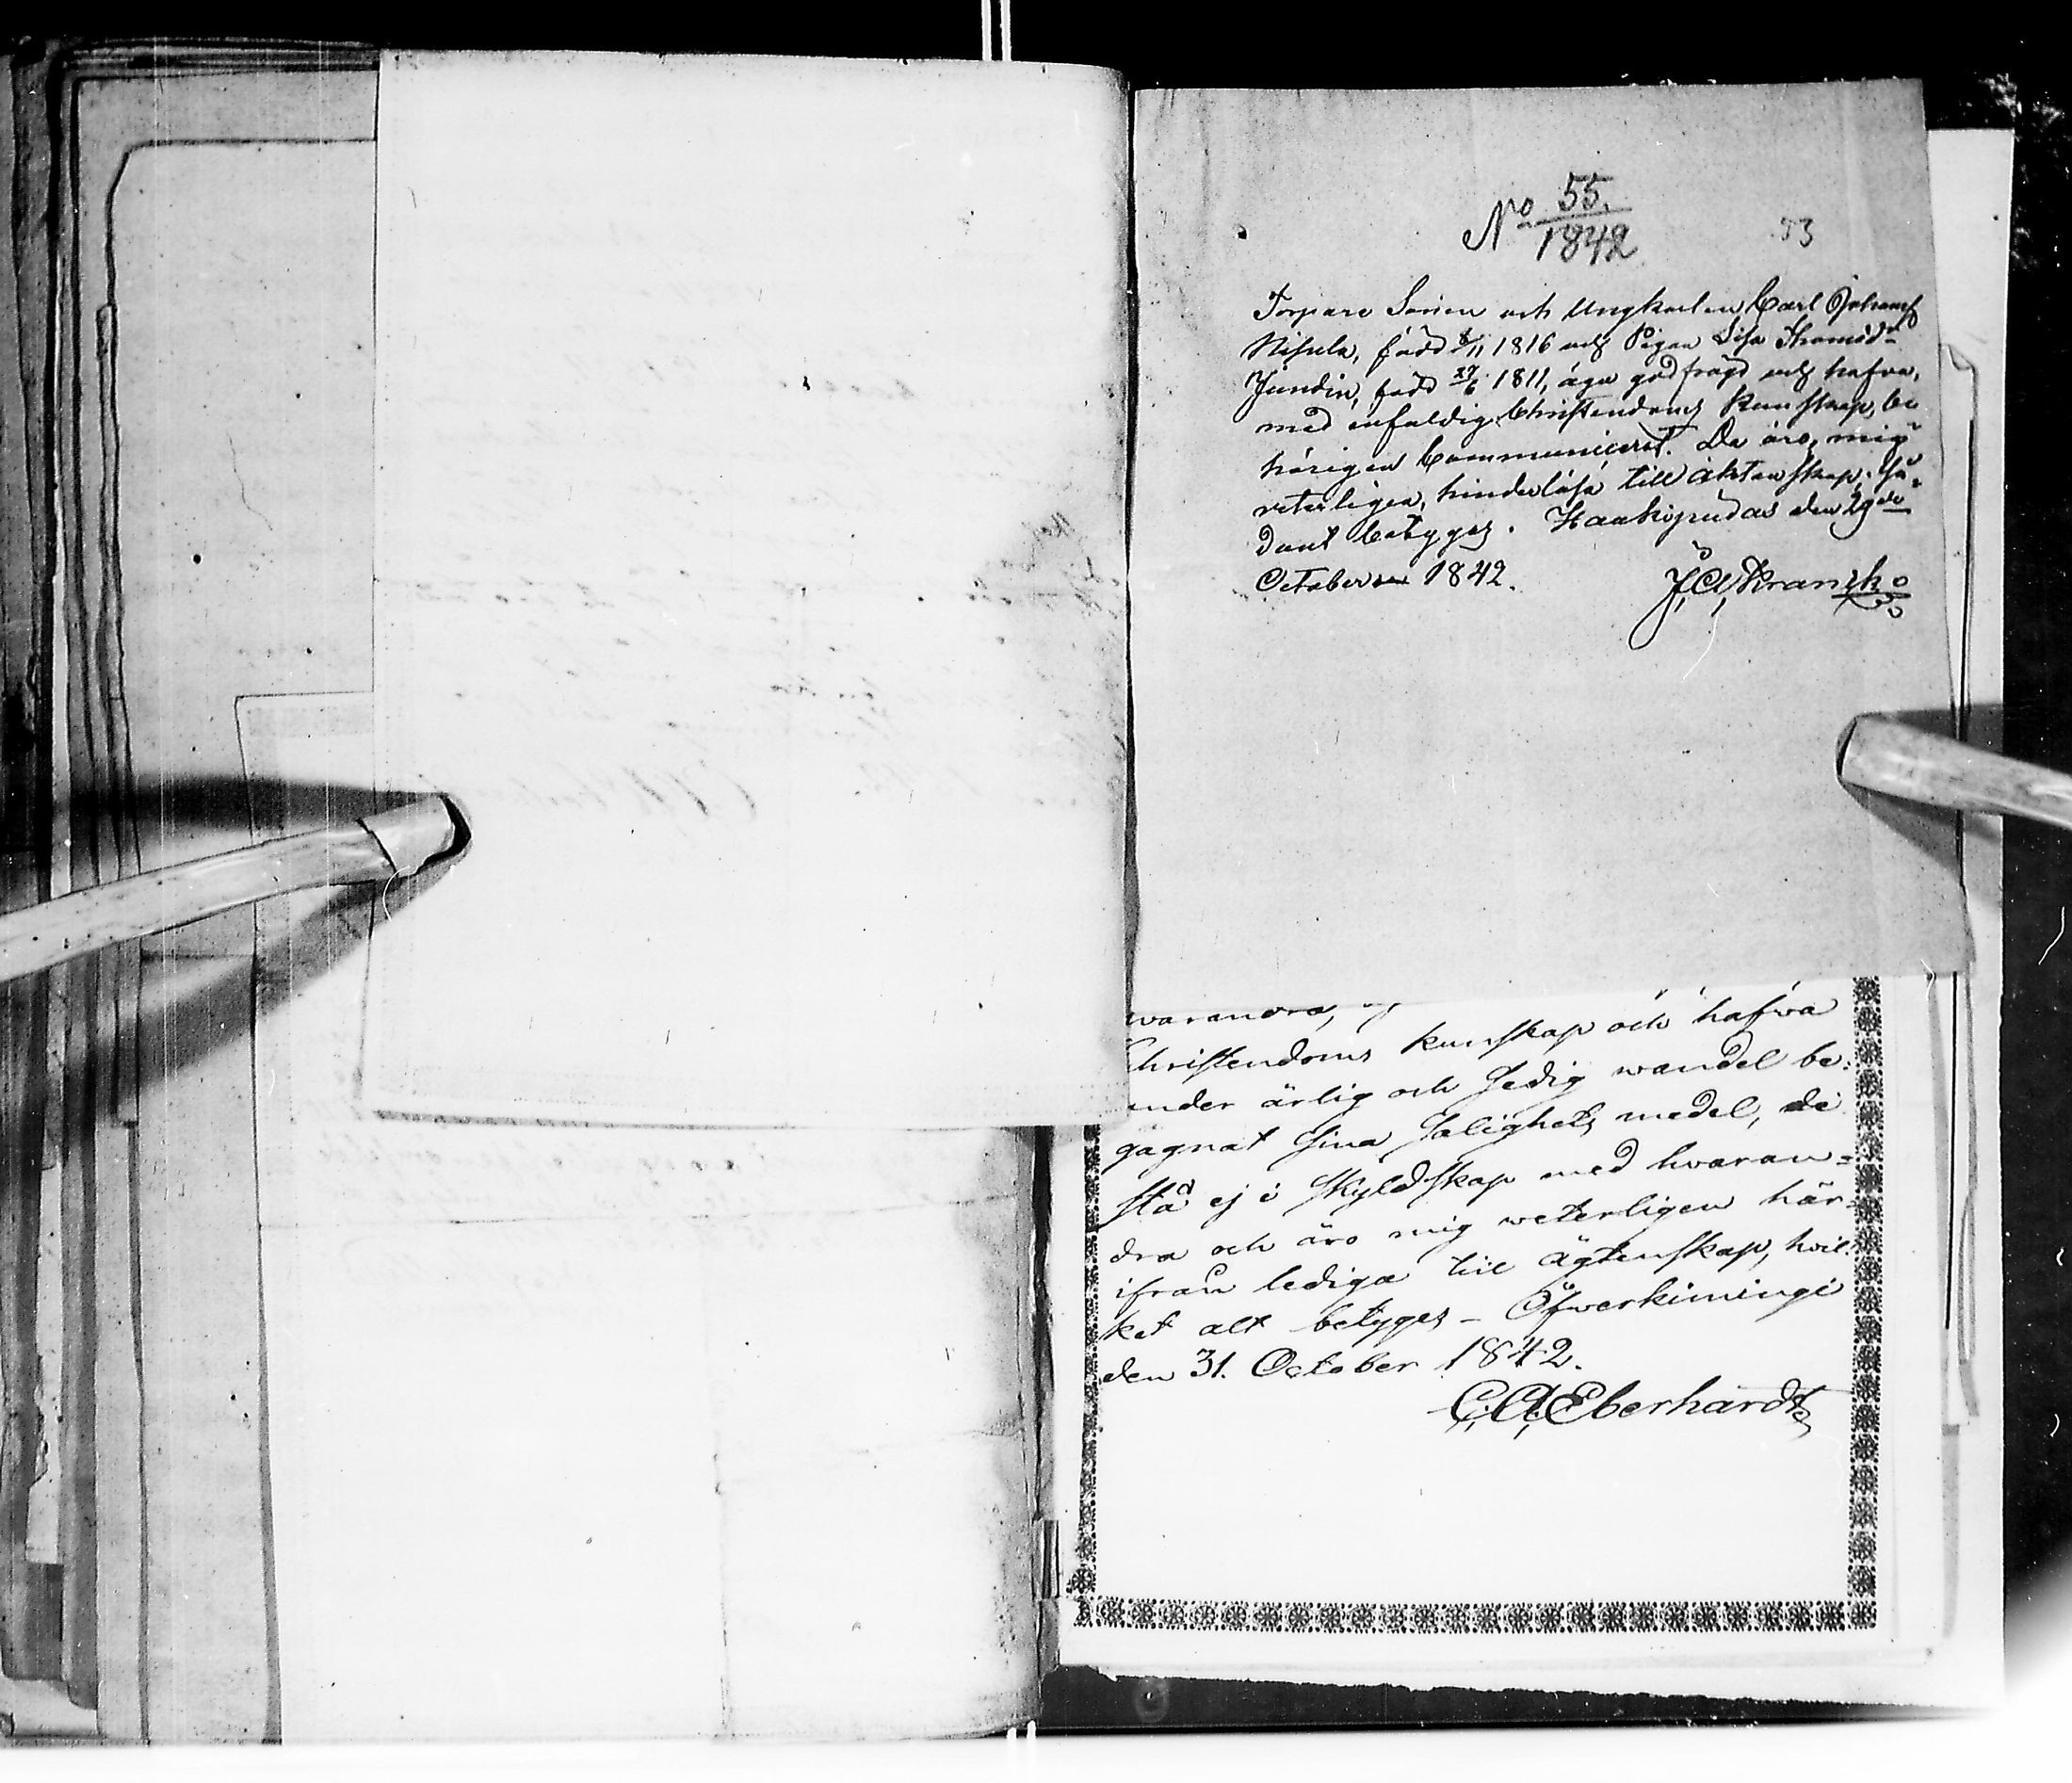 No 55.
1842
53
Torpare Sonen och Ungkarlen Carl Johansf
Nisula, född 8/11 1816 och Pigan Lisa Thomasd-
Jundin, född 27/6 1811, äga god frägd och hafva,
med enfaldig Christendoms kunskap, be
hörigen Communicerat. De äro, mig
veterligen, hinderlösa till äktenskap; så-
dant betyges. Haukipudas den 29de
October 1842.
J. A. Kranck
warandra,
Christendoms kunskap och hafwa
under ärlig och sedig wandel be-
gagnat sina salighets medel, de
stå ej i skyldskap med hwaran-
dra och äro mig weterligen här-
ifrån lediga til ägtenskap, hvil-
ket alt betyges – Öfwerkimingi
den 31. October 1842.
C. A. Eberhardt